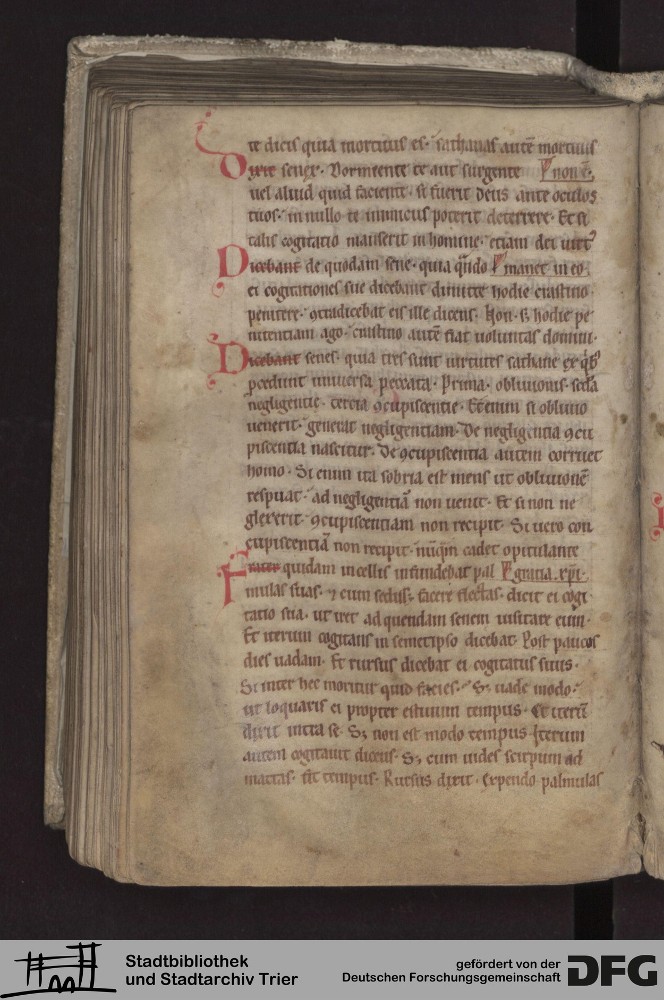 te dicis quia mortuus es. sathanas autē mortuus
Dixit senex. Dormiente te aut surgente non ē.
uel aliud quid faciente. si fuerit deus ante oculos
tuos. in nullo te inimicus poterit deterrere. Et si
talis cogitatio manserit in homine. etiam dei uirt᾽
Dicebant de quodam sene. quia qn̄do manet in eo.
ei cogitationes sue dicebant dimitte hodie crastino
penitere. ꝯtradicebat eis ille dicens. Non. sꝫ hodie pe
nitentiam ago. crastino autē fiat uoluntas domini.
Dicebant senes. quia tres sunt uirtutes sathane ex qͥb᾽
p̄cedunt uniuersa peccata. Prima. obliuionis. sc̄da
negligentie. tercia ꝯcupiscentie. Etenim si obliuio
uenerit. generat negligentiam. De negligentia ꝯcu
piscentia nascitur. De ꝯcupiscentia autem corruet
homo. Si enim ita sobria est mens ut obliuionē
respuat. ad negligentiā non uenit. Et si non ne
glexerit. ꝯcupiscentiam non recipit. Si uero con
cupiscentiā non recipit. nūqm̄ cadet opitulante
Frater quidam in cellis infundebat pal gratia xp̄i.
mulas suas. ⁊ cum sedis; facere flectas. dicit ei cogi
tatio sua. ut iret ad quendam senem uisitare eum.
Et iterum cogitans in semetipso dicebat. Post paucos
dies uadam. Et rursus dicebat ei cogitatus suus.
Si inter hec moritur quid facies. Sꝫ uade modo.
ut loquaris ei propter estiuum tempus. Et iterū
dixit intra se. Sꝫ non est modo tempus. Iterum
autem cogitauit dicens. Sꝫ cum uides scirpum ad
mattas. fit tempus. Rursus dixit. Expendo palmulas
Stadtbibliothek
und Stadtarchiv Trier
gefördert von der
Deutschen Forschungsgemeinschaft
DFG